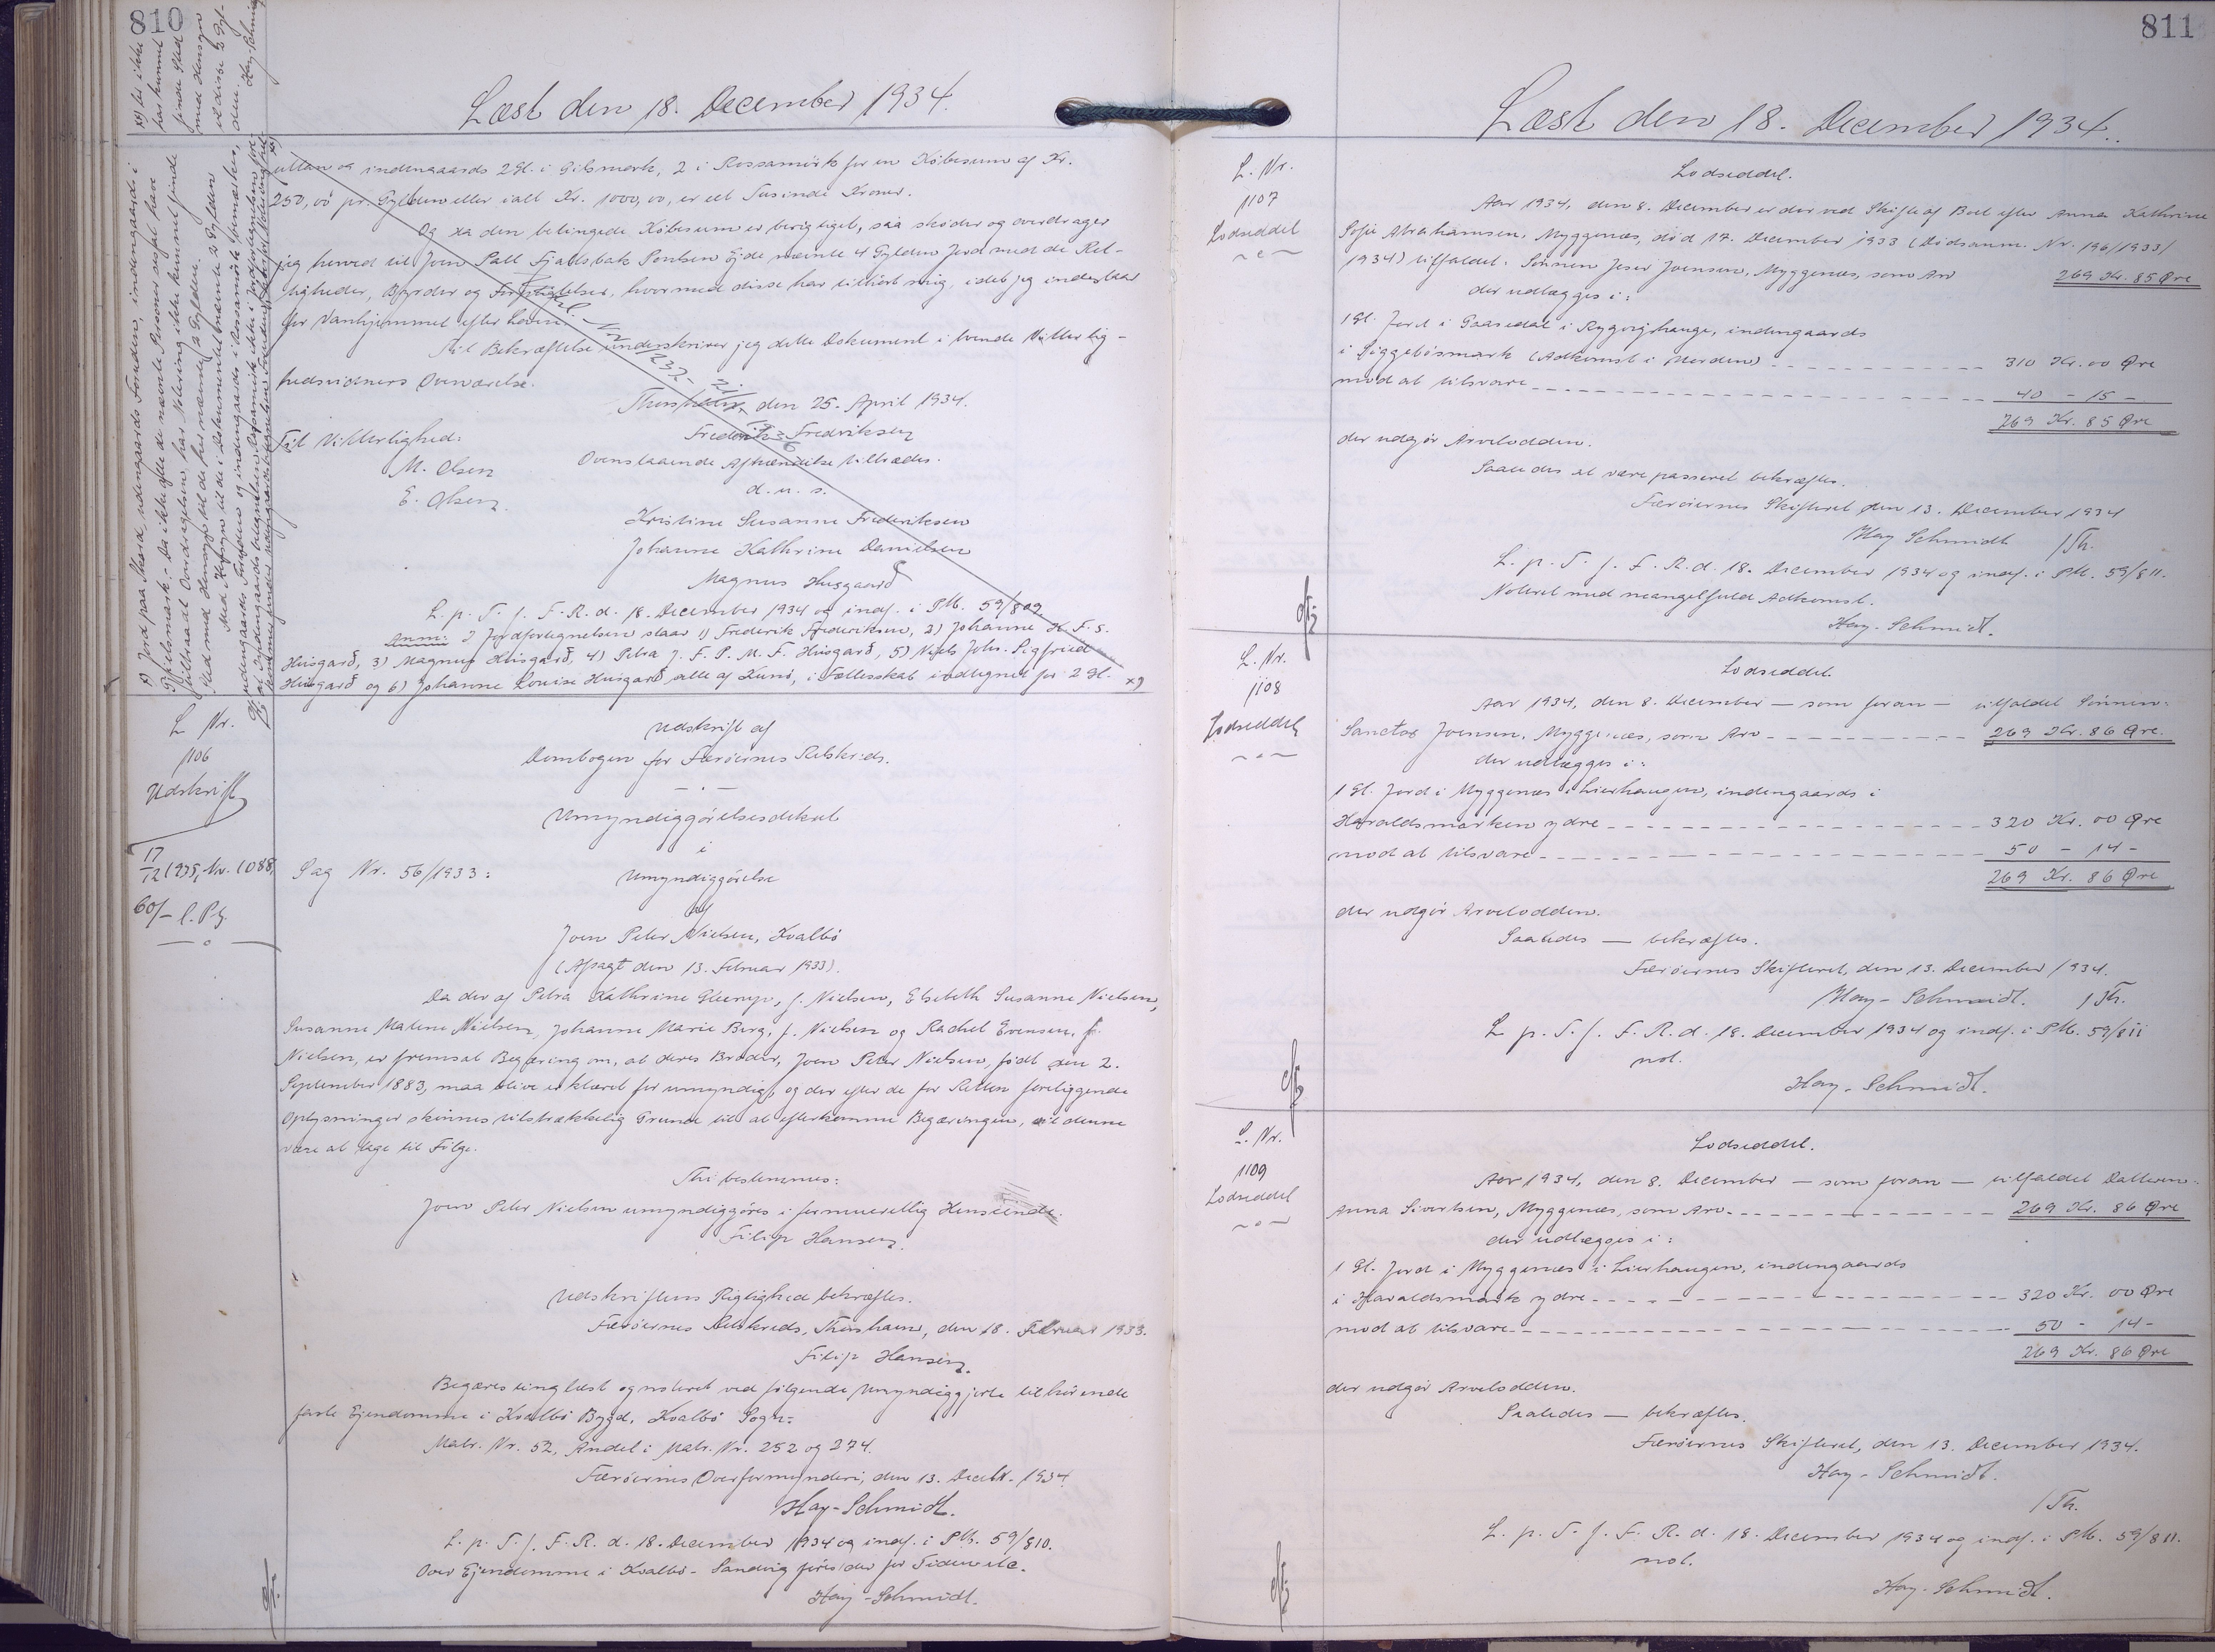 810
Læst den 18. December 1934.
uttan og indengaards 2 Gl. i Gilsmørk, 2 i Rossamørk for en Købesum af Kr.
250,00 pr. Gylden eller ialt Kr. 1000,00, er eet Tusinde Kroner.
Og da den betingede Købesum er berigtiget, saa skøder og overdrager
jeg herved til Joen Pall Fjallsbak Poulsen Ejde nævnte 4 Gylden Jord med de Ret-
tigheder, Byrder og Forpligtelser, hvormed disse har tilhørt mig, idet jeg indestaar
for Vanhjemmel efter Loven.
Til Bekræftelse underskriver jeg dette Dokument i tvende Vitterlig-
hedsvidners Overværelse.
Thorshavn, den 25. April 1934.
Frederik Fredriksen
Til Vitterlighed:
M. Olsen
E. Olsen
Ovenstaaende Afhændelse tiltrædes.
d. u. s.
Kristine Susanne Frederiksen
Johanne Kathrine Danielsen
Magnus Husgaard
L. p. T. f. F. R. d. 18. December 1934 og indf. i PM. 59/809
Anm: I Jordfortegnelsen staar 1) Frederik Frederiksen, 2) Johanne K. F. S.
Húsgarð, 3) Magnus Húsgarð, 4) Petra J. F. P. M. F. Húsgarð, 5) Niels Johs. Sigfried
Húsgarð og 6) Johanne Louise Húsgarð alle af Kunö, i Fællesskab indtegnet for 2 Gl. x)
x) Jord paa Skard, udengaards Fonden, indengaards i
Gilsmark. - Da ikke
L. Nr.
1106
Udskrift
17/12 1935, Nr. 1088,
60/- l. Pg.
Udskrift af
Dombogen for Færöernes Retskreds.
Umyndiggörelsesdekret
i
Sag Nr. 56/1933:
Umyndiggörelse
af
Joen Peter Nielsen, Kvalbö
(Afsagt den 13. Februar 1933).
Da der af Petra Kathrine Glerup, f. Nielsen, Elsebeth Susanne Nielsen,
Susanne Malene Nielsen, Johanne Marie Berg, f. Nielsen og Rachel Evensen, f.
Nielsen, er fremsat Begæring om, at deres Broder, Joen Peter Nielsen, født den 2.
September 1883, maa blive erklæret for umyndig, og der efter de for Retten foreliggende
Oplysninger skönnes tilstrækkelig Grund til at efterkomme Begæringen, vil denne
være at tage til Fölge.
Thi bestemmes:
Joen Peter Nielsen umyndiggöres i formueretlig Henseende.
Filip Hansen.
Udskriftens Rigtighed bekræftes.
Færöernes Retskreds, Thorshavn, den 18. Februar 1933.
Filip Hansen.
Begæres tinglæst og noteret ved fölgende Umyndiggjorte tilhörende
faste Ejendomme i Kvalbö Bygd, Kvalbö Sogn:
Matr. Nr. 52, Andel i Matr. Nr. 252 og 274.
Færöernes Overformynderi, den 13. Decbr. 1934.
Hay-Schmidt.
L. p. T. f. F. R. d. 18. December 1934 og indf. i PM. 59/810.
Over Ejendomme i Kvalbö - Sandvig
Hay-Schmidt.
811
Læst den 18. December 1934.
L. Nr.
1107
Lodseddel
Lodseddel.
Aar 1934, den 8. December er der ved Skifte af Boet efter Anna Kathrine
Sofie Abrahamsen, Myggenæs, död 17. December 1933 (Dödsanm. Nr. 196/1933/
1934) tilfaldet: Sönnen Joen Joensen, Myggenæs, som Arv 269 Kr. 85 Øre
der udlægges i:
1 Gl. Jord i Gaasedal i Rygvishauge, indengaards
i Siggebösmark (Adkomst i Orden) 310 Kr. 00 Øre
mod at tilsvare 40 - 15 -
269 Kr. 85 Øre
der udgör Arvelodden.
Saaledes at være passeret bekræftes.
Færöernes Skifteret, den 13. December 1934
Hay Schmidt /Th.
L. p. T. f. F. R. d. 18. December 1934 og indf. i PM. 59/811.
Noteret med mangelfuld Adkomst.
Hay-Schmidt.
L. Nr.
1108
Lodseddel
Lodseddel.
Aar 1934, den 8. December — som foran — tilfaldet Sönnen:
Joensen, Myggenæs, som Arv 269 Kr. 86 Øre.
der udlægges i:
1 Gl. Jord i Myggenæs i Lierhaugen, indengaards i
Haraldsmarken ydre 320 Kr. 00 Øre
mod at tilsvare 50 - 14 -
269 Kr. 86 Øre
der udgör Arvelodden.
Saaledes — bekræftes.
Færöernes Skifteret, den 13. December 1934.
Hay-Schmidt. /Th.
L. p. T. f. F. R. d. 18. December 1934 og indf. i PM. 59/811
not.
Hay-Schmidt.
L. Nr.
1109
Lodseddel
Lodseddel.
Aar 1934, den 8. December — som foran — tilfaldet Datteren:
Anna Sivertsen, Myggenæs, som Arv 269 Kr. 86 Øre
der udlægges i:
1 Gl. Jord i Myggenæs i Lierhaugen, indengaards
i Haraldsmark ydre 320 Kr. 00 Øre
mod at tilsvare 50 - 14 -
269 Kr. 86 Øre
der udgör Arvelodden.
Saaledes — bekræftes.
Færöernes Skifteret, den 13. December 1934.
Hay-Schmidt.
/Th.
L. p. T. f. F. R. d. 18. December 1934 og indf. i PM. 59/811.
not.
Hay-Schmidt.